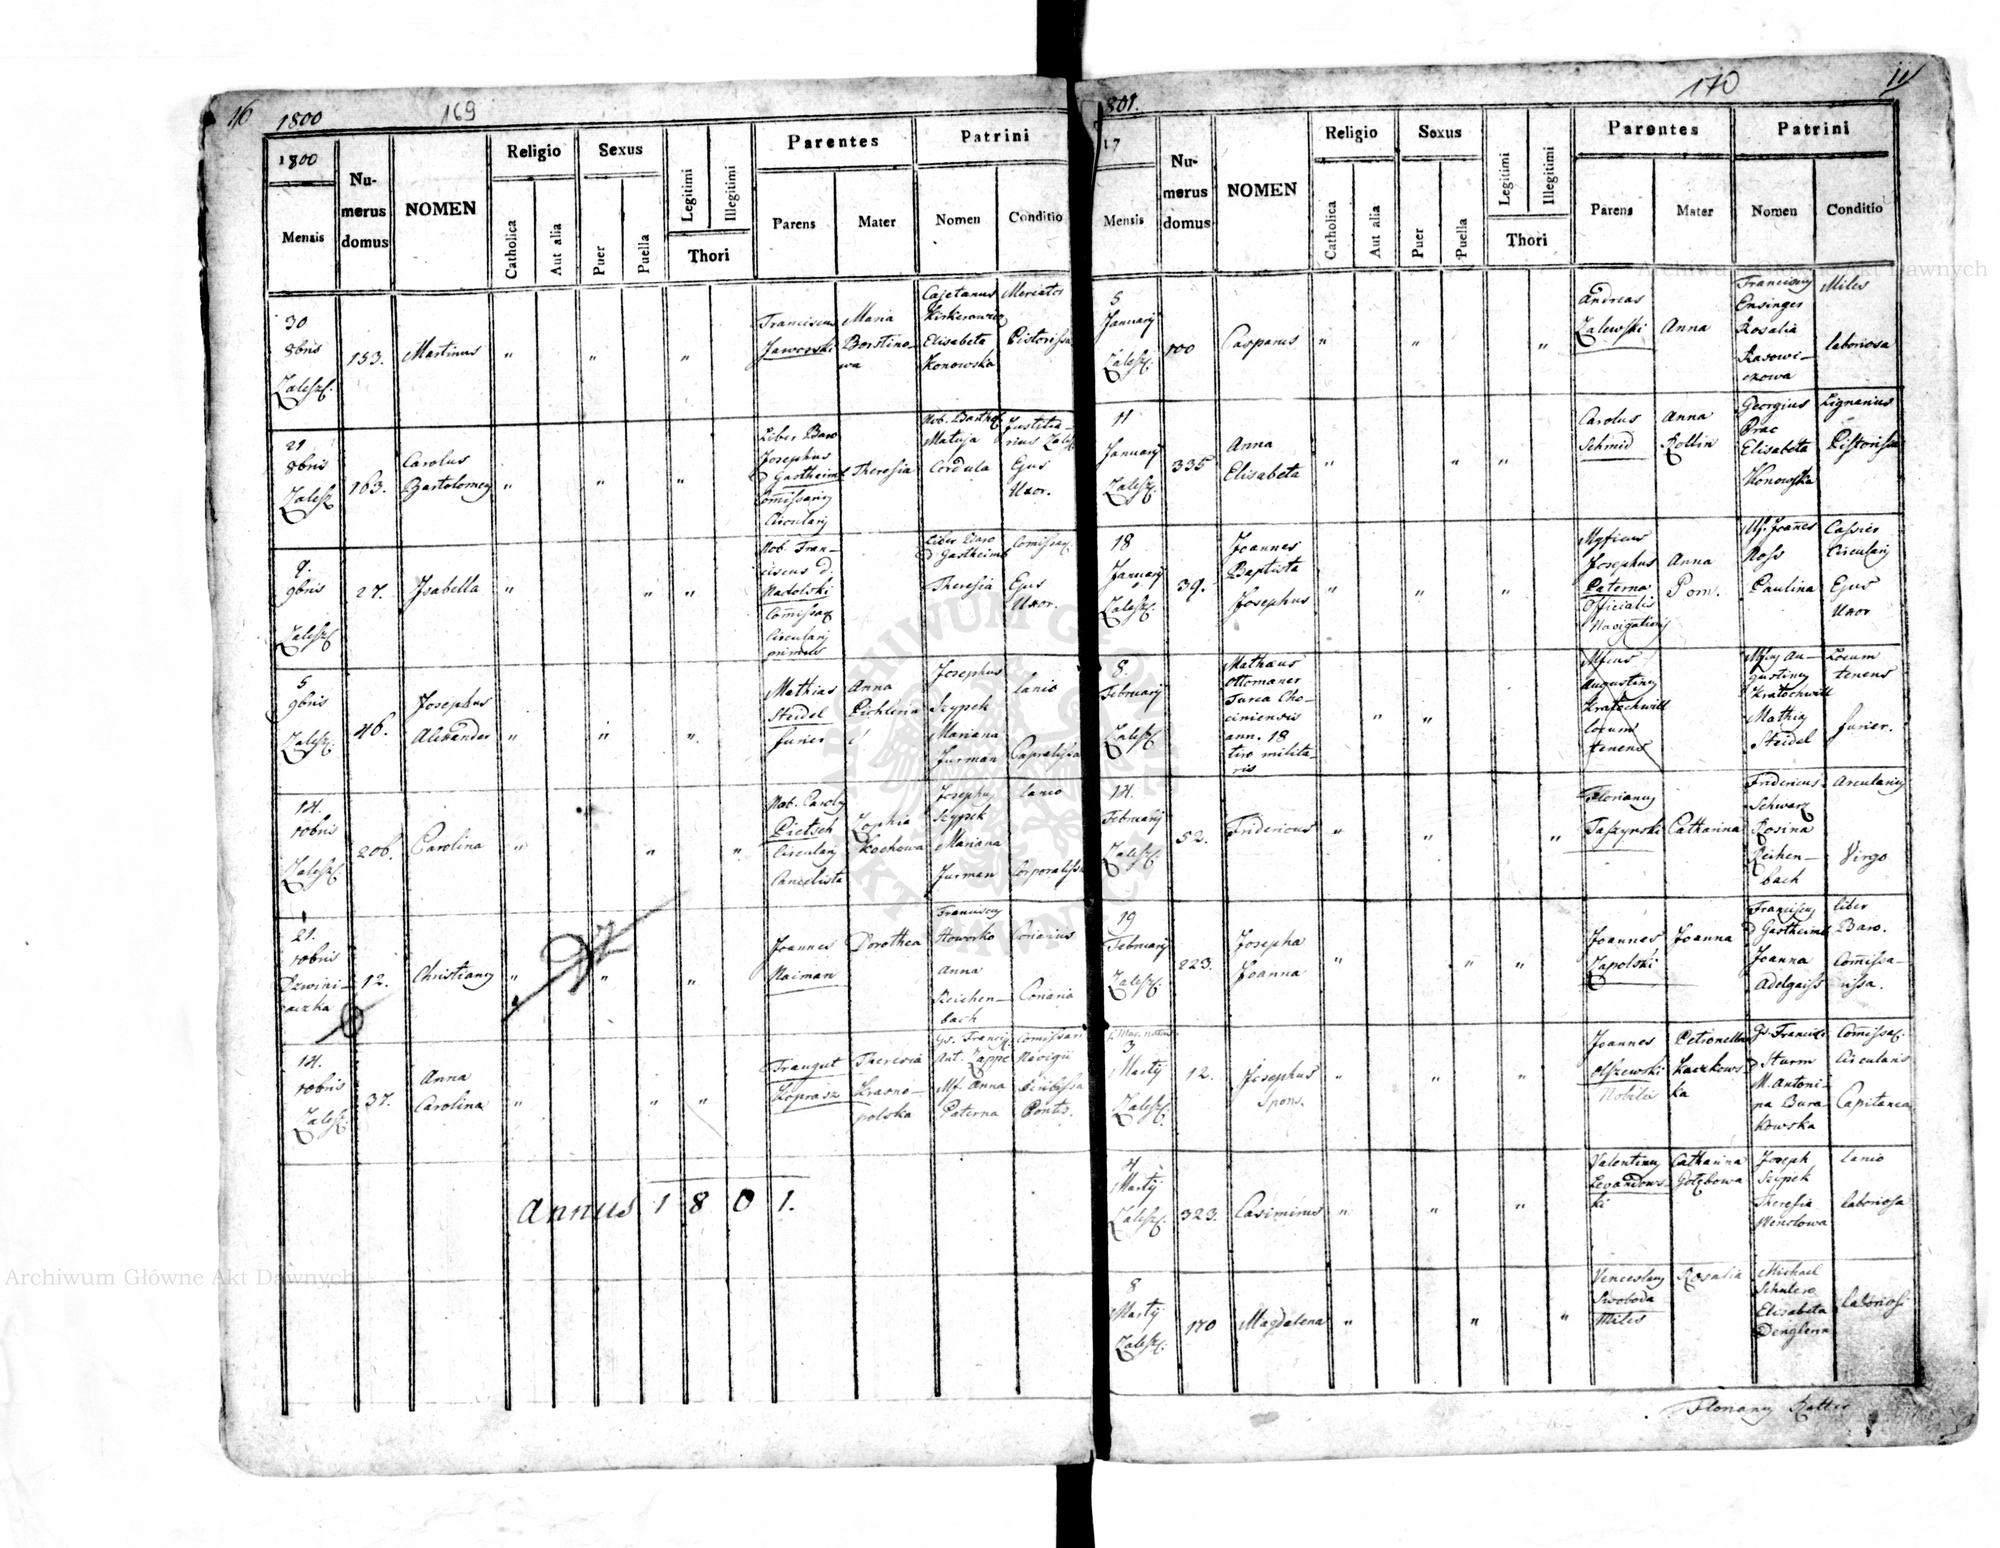 16
1800
169
1800
Mensis
Numerus domus
NOMEN
Religio
Catholica
Aut alia
Sexus
Puer
Puella
Legitimi
Illegitimi
Thori
Parentes
Parens
Mater
Patrini
Nomen
Conditio
30
8bris
Zalesz.
153.
Martinus
"
"
"
Franciscus
Jaworski
Maria
Borstino-
wa
Cajetanus
Kirkierowicz
Elisabeta
Konowska
Mercator
Pistorissa
21
8bris
Zalesz
163.
Carolus
Bartolomey
"
"
"
Liber Baro
Josephus
D Gastheimb
Comissariy
Circulary
Theresia
Nob.
Matuja
Cordula
Justitia-
rius
Ejus
Uxor.
9.
9bris
Zalesz
27.
Isabella
"
"
"
Nob. Fran-
ciscus d.
Nadolski
Comissar
Circulary
primus
Liber Baro
D Gastheimb
Theresia
Comissar.
Ejus
Uxor.
5
9bris
Zalesz.
46.
Josephus
Alexander
"
"
"
Mathias
Steidel
furier
Anna
Pichlerin
Josephus
Szypek
Mariana
Furman
lanio
Capralissa
14.
10bris
Zalesz.
206.
Carolina
"
"
"
Nob. Caroly
Pietsch
Circulary
Cancelista
Zophia
Kochowa
Josephy
Szypek
Mariana
Furman
lanio
Corporalissa
21.
10bris
Dzwini-
aczka
12.
Christiany
"
"
"
Joannes
Naiman
Dorothea
Franciscy
Howorko
Anna
Reichen-
bach
Coriarius
Coriaria
14.
10bris
Zalesz.
37.
Anna
Carolina
"
"
"
Traugut
Koprasz
Theresia
Krasno-
polska
Gs. Francis.
Ant. Zappe
Mf. Anna
Paterna
Comissari
Navigii
Pontis.
Annus 1801.
801.
170
17
Mensis
Numerus domus
NOMEN
Religio
Catholica
Aut alia
Sexus
Puer
Puella
Legitimi
Illegitimi
Thori
Parentes
Parens
Mater
Patrini
Nomen
Conditio
5
January
Zalesz.
100
Casparus
"
"
"
Andreas
Zalewski
Anna
Franciscy
Ensinger
Rosalia
Rasowi-
czowa
Miles
laboriosa
11
January
Zalesz.
335
Anna
Elisabeta
"
"
"
Carolus
Schmid
Anna
Rollin
Georgius
Prac
Elisabeta
Konowska
Lignarius
Pistorissa
18
January
Zalesz.
39.
Joannes
Baptista
Josephus
"
"
"
Josephus
Paterna
Officialis
Navigationy
Anna
Pom.
Mf. Joanes
Ross
Paulina
Cassier
Circulary
Ejus
Uxor
8.
February
Zalesz
Mathaus
Ottomaner
Turca Cho-
cimiensis
ann. 18
tiro milita-
ris
"
"
Augustiny
Kratochwill
locum
tenens
Mfcy Au-
gustiny
Kratochwill
Mathig
Steidel
Locum
tenens
furier.
14.
February
Zalesz.
52.
Fridericus
"
"
"
Floriany
Taszynski
Catharina
Fridericus
Schwarz
Rosina
Reihen-
bach
Arculariy
Virgo
19
February
Zalesz.
223.
Josepha
Joanna
"
"
"
Joannes
Zapolski
Joanna
Franciscy
D Gastheimb
Joanna
Adelgaiss
liber
Baro.
Comissa-
rissa.
3
Marty
Zalesz.
12.
Josephus
Spons.
"
"
"
Joannes
Olszewski
Nobilis
Petronella
Kaczkows-
ka
Gs Francisc
D Sturm
M. Antoni-
na Bura-
kowska
Comissar.
Circularis
Capitanea
4
Marty
Zalesz.
323.
Casimirus
"
"
"
Valentiny
Levandows-
ki
Catharina
Gołębowa
Joseph
Szypek
Theresia
Wenclowa
lanio
laboriosa
8
Marty
Zalesz.
170
Magdalena
"
"
"
Venceslaus
Swoboda
Miles
Rosalia
Michael
Schulerz
Elisabeta
Denglerin
laboriosi
Floriany
Archiwum Główne Akt Dawnych
Archiwum Główne Akt Dawnych
ARCHIWUM GŁÓWNE AKT DAWNYCH